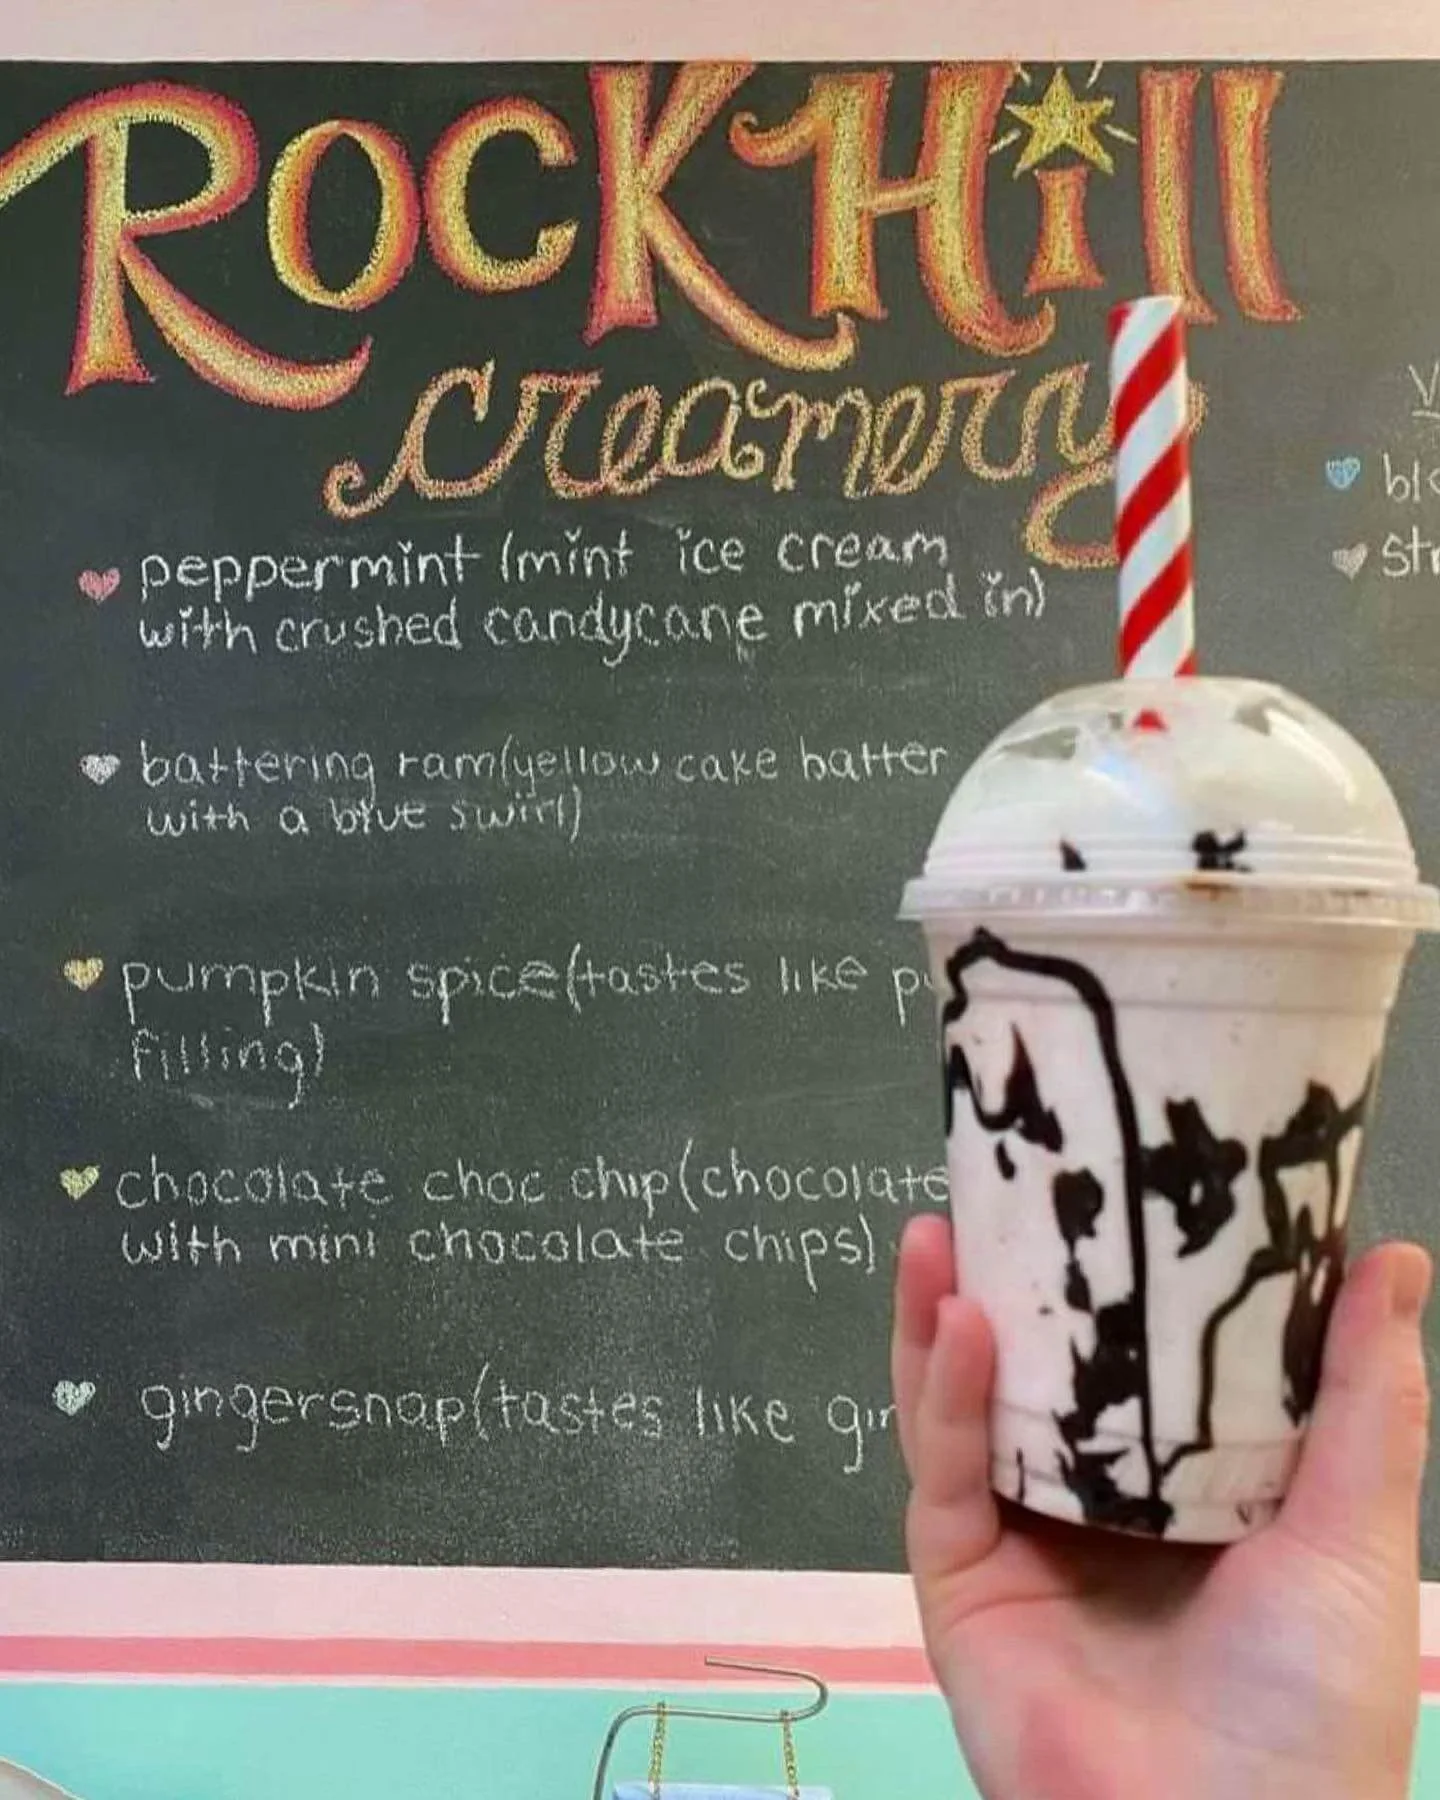 RocKHill
creamery
peppermint (mint ice cream
with crushed candycane mixed in)
battering ram(yellow cake batter
with a blue swirl)
pumpkin spice(tastes like
filling)
chocolate choc chip(chocolate
with mini chocolate chips)
gingersnap(tastes like